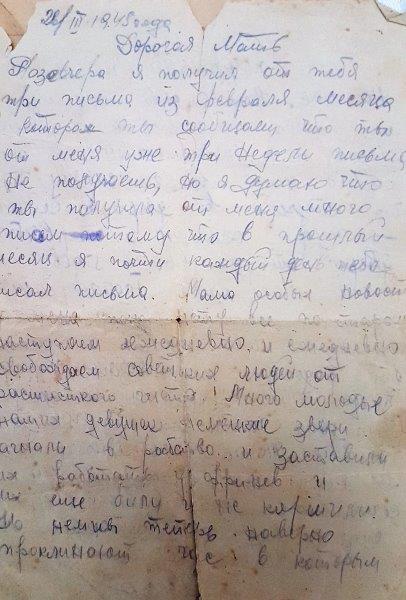 26/III 1945 года
Дорогая Мама
Позавчера я получил от тебя
три письма из февраля месяца
которох ты сообщаеш что ты
от меня уже три недели письма
не получаешь, но я думаю что
ты получила от меня много
писем потому что в прошлый
месяц я почти каждый день тебе
писал письма. Мама особых новост
у меня нету все по старом
наступаем ежедневно, и ежедневно
освобождаем советских людей от
фашистского гнета. Много молодые
наших девушек немецкие звери
загнали в рабство и заставили
их работать у фрицев и
их еще били и не кормили.
Но немцы теперь наверно
проклинают час в которым